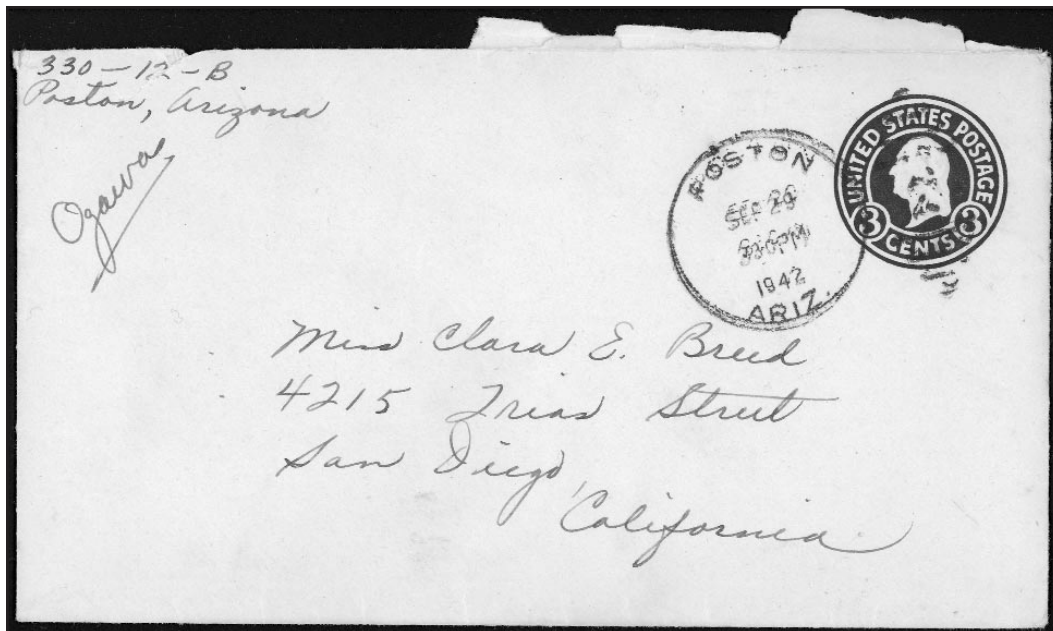 330-12-B
Poston, Arizona
Ogawa
POSTON
SEP 29
330PM
1942
ARIZ.
UNITED STATES POSTAGE
3 CENTS 3
Miss Clara E. Breed
4215 Trias Street
San Diego,
California